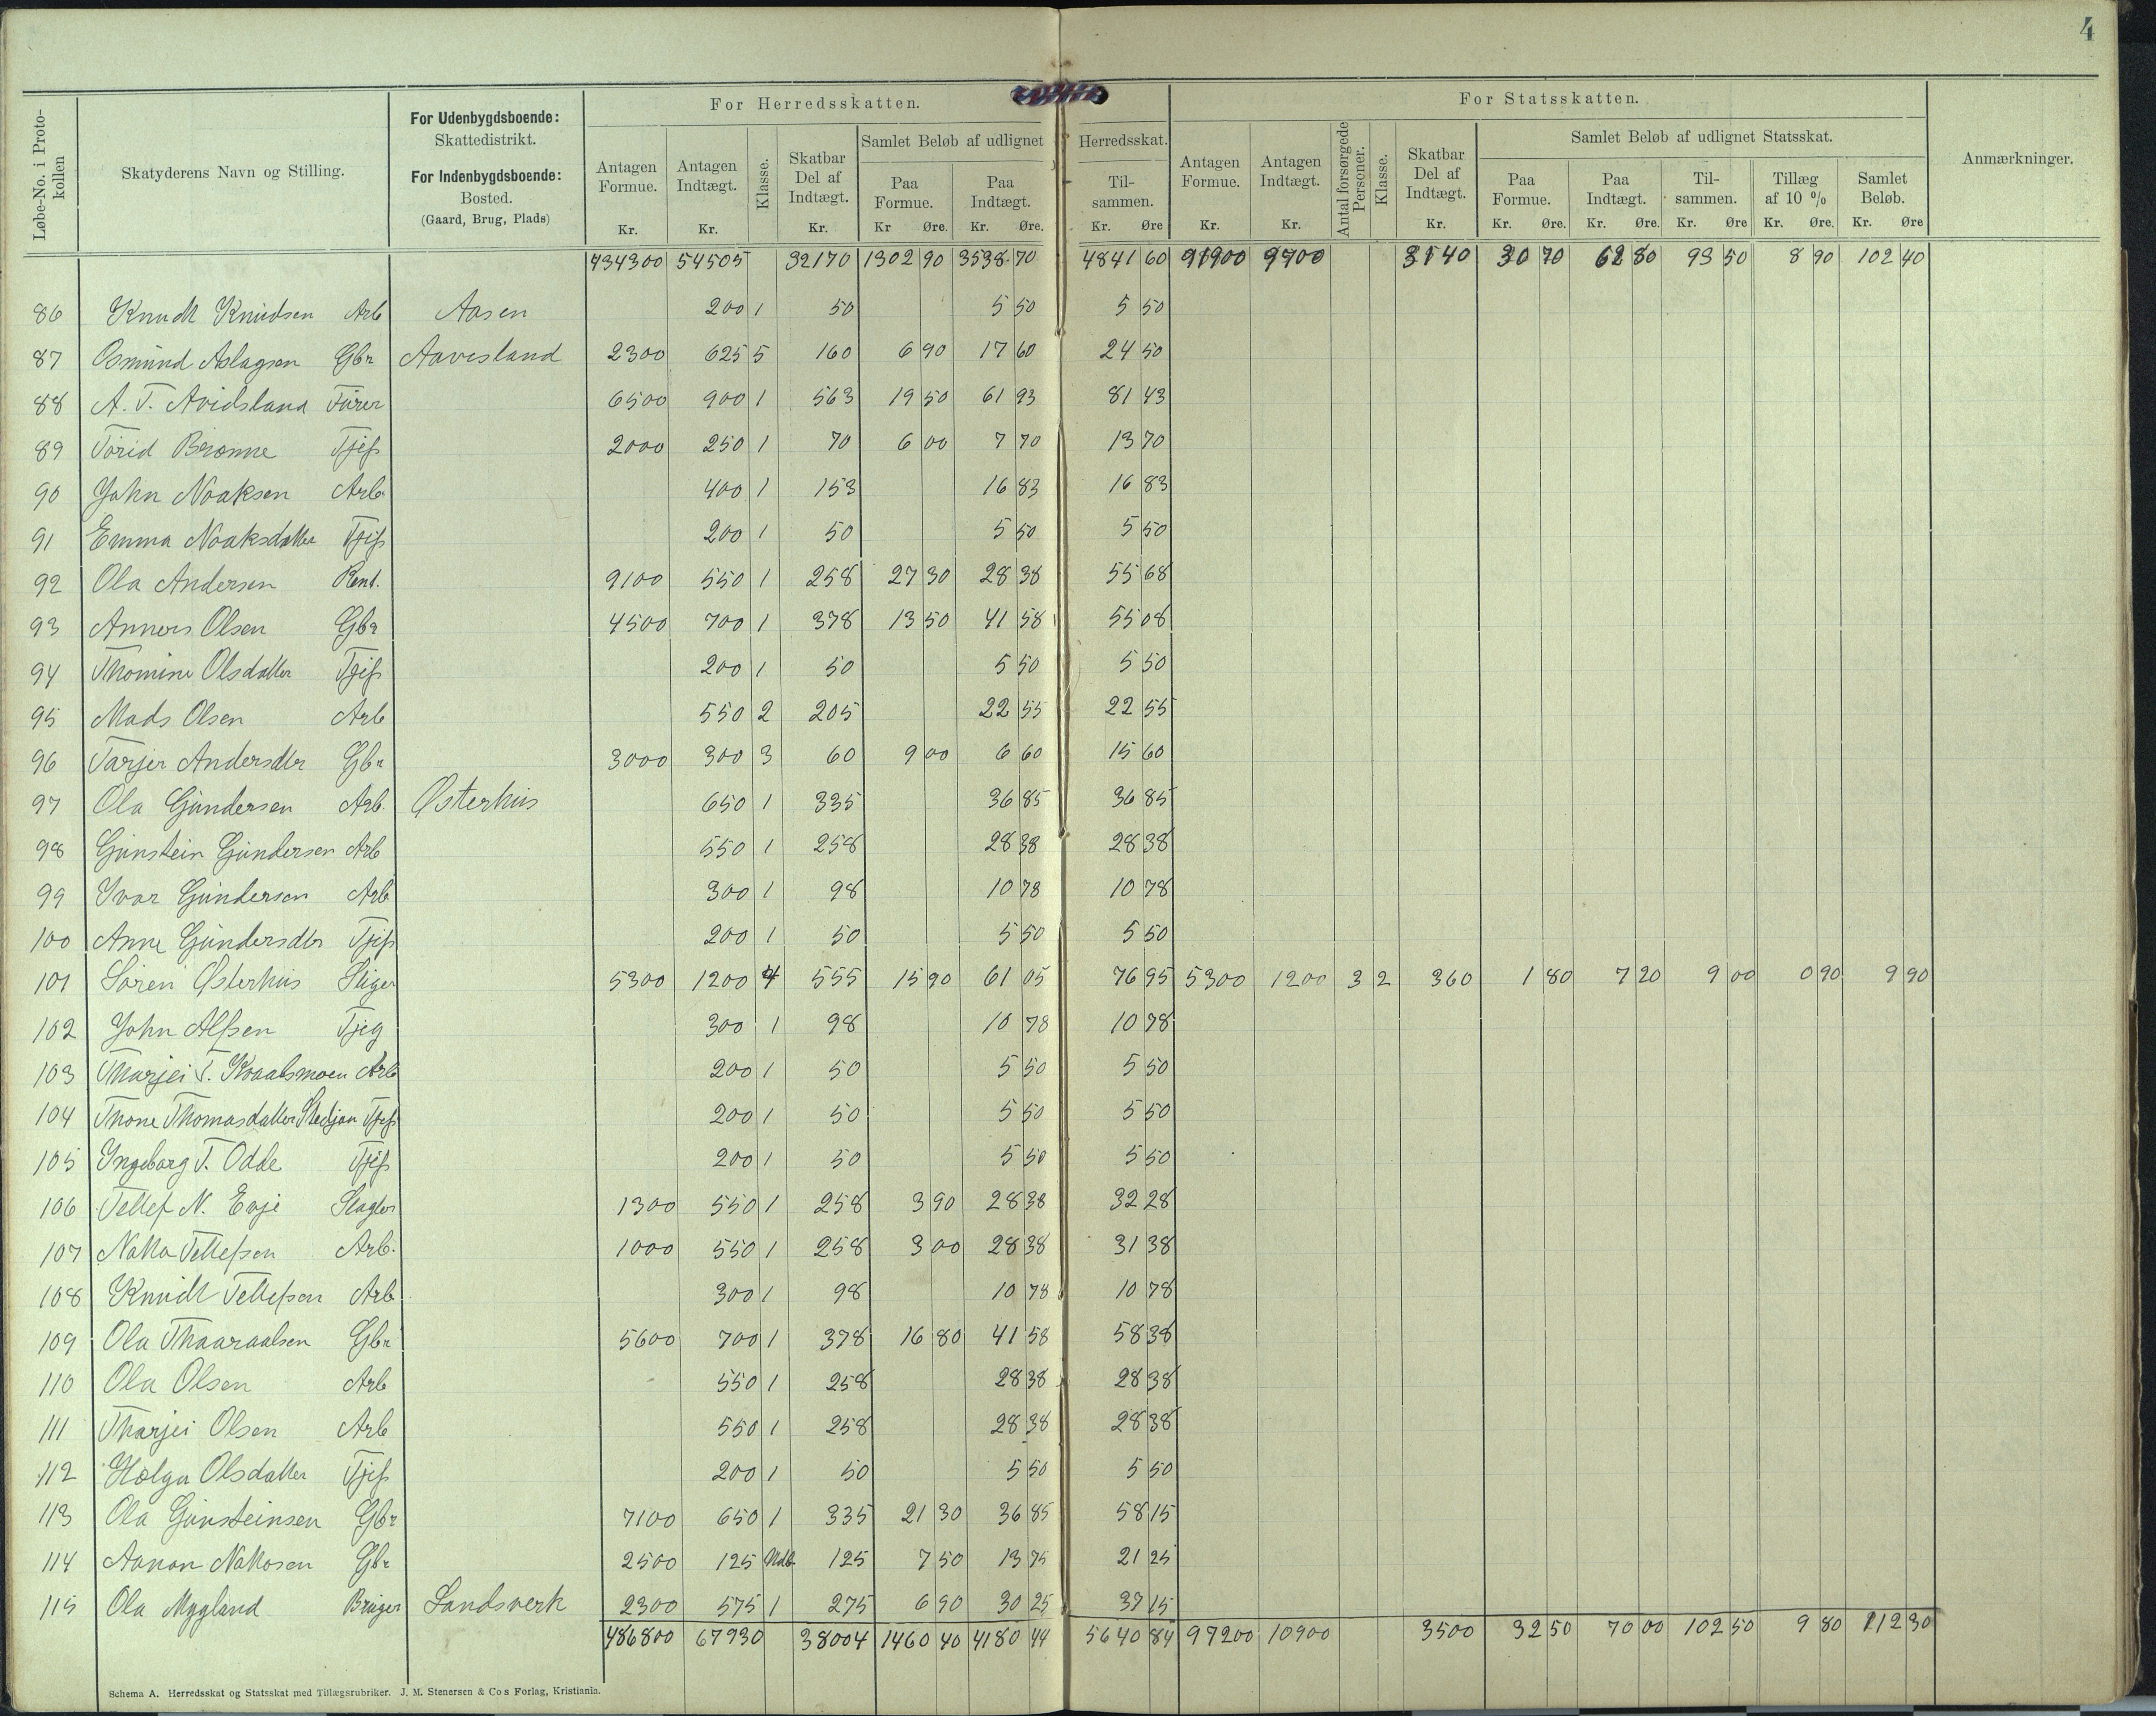 4
For Herredsskatten. For Statsskatten.
Løbe-No. i Protokollen
Skatyderens Navn og Stilling.
For Udenbygdsboende:
Skattedistrikt.
For Indenbygdsboende:
Bosted.
(Gaard, Brug, Plads)
Antagen Formue. Kr.
Antagen Indtægt. Kr.
Klasse.
Skatbar Del af Indtægt. Kr.
Samlet Beløb af udlignet Herredsskat.
Paa Formue. Kr Øre.
Paa Indtægt. Kr. Øre.
Tilsammen. Kr. Øre
Antagen Formue. Kr.
Antagen Indtægt. Kr.
Antal forsørgede Personer.
Klasse.
Skatbar Del af Indtægt. Kr.
Samlet Beløb af udlignet Statsskat.
Paa Formue. Kr. Øre.
Paa Indtægt. Kr. Øre.
Tilsammen. Kr. Øre
Tillæg af 10 % Kr. Øre.
Samlet Beløb. Kr. Øre
Anmærkninger.
434300 54505 32170 1302 90 3538 70 4841 60 91900 9700 3140 30 70 62 80 93 50 8 90 102 40
86 Knudt Knudsen Arb Aasen 200 1 50 5 50 5 50
87 Osmund Aslagsen Gbr Aavesland 2300 625 5 160 6 90 17 60 24 50
88 A. T. Avidsland Furer 6500 900 1 563 19 50 61 93 81 43
89 Torid Brønne Tjeß 2000 250 1 70 6 00 7 70 13 70
90 John Noaksen Arb 400 1 153 16 83 16 83
91 Emma Noaksdatter Tjeß 200 1 50 5 50 5 50
92 Ola Andersen Rent. 9100 550 1 258 27 30 28 38 55 68
93 Anners Olsen Gbr 4500 700 1 378 13 50 41 58 55 08
94 Thomine Olsdatter Tjeß 200 1 50 5 50 5 50
95 Mads Olsen Arb 550 2 205 22 55 22 55
96 Tarjer Andersdtr Gbr 3000 300 3 60 9 00 6 60 15 60
97 Ola Gundersen Arb. Østerhus 650 1 335 36 85 36 85
98 Gunstein Gundersen Arb 550 1 258 28 38 28 38
99 Ivar Gundersen Arb 300 1 98 10 78 10 78
100 Anne Gundersdtr Tjeß 200 1 50 5 50 5 50
101 Søren Østerhus Stiger 5300 1200 4 555 15 90 61 05 76 95 5300 1200 3 2 360 1 80 7 20 9 00 0 90 9 90
102 John Alfsen Tjeg 300 1 98 10 78 10 78
103 Tharjei T. Kvaalsmoen Arb 200 1 50 5 50 5 50
104 Thone Thomasdatter Tjeß 200 1 50 5 50 5 50
105 Ingeborg T. Odde Tjeß 200 1 50 5 50 5 50
106 Tellef N. Evje Slagter 1300 550 1 258 3 90 28 38 32 28
107 Tellefsen Arb. 1000 550 1 258 3 00 28 38 31 38
108 Knudt Tellefsen Arb 300 1 98 10 78 10 78
109 Ola Thaaraalsen Gbr 5600 700 1 378 16 80 41 58 58 38
110 Ola Olsen Arb 550 1 258 28 38 28 38
111 Tharjei Olsen Arb 550 1 258 28 38 28 38
112 Helga Olsdatter Tjeß 200 1 50 5 50 5 50
113 Ola Gunsteinsen Gbr 7100 650 1 335 21 30 36 85 58 15
114 Aanon Gbr 2500 125 Udb 125 7 50 13 75 21 25
115 Ola Mygland Bruger Landsverk 2300 575 1 275 6 90 30 25 37 15
486800 67930 38004 1460 40 4180 44 5640 84 97200 10900 3500 32 50 70 00 102 50 9 80 112 30
Schema A. Herredsskat og Statsskat med Tillægsrubriker. J. M. Stenersen & Cos Forlag, Kristiania.